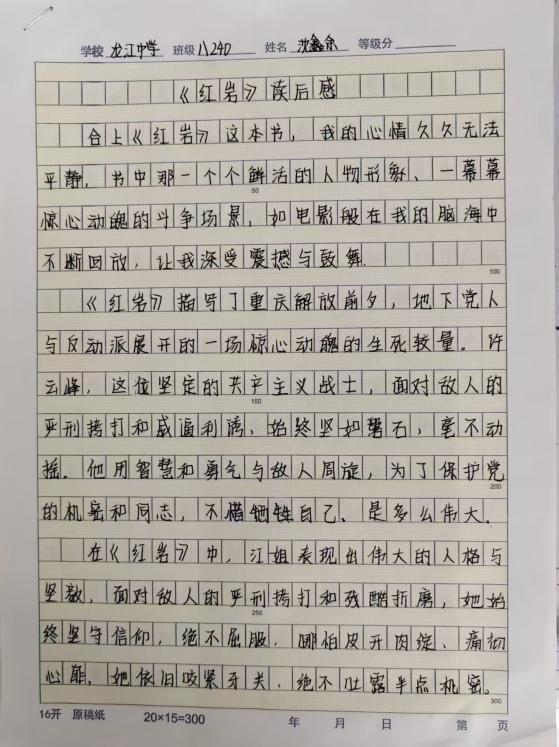 学校 龙江中学 班级 八240 姓名 沈鑫余 等级分
《红岩》读后感
合上《红岩》这本书，我的心情久久无法
平静，书中那一个个鲜活的人物形象、一幕幕
惊心动魄的斗争场景，如电影般在我的脑海中
50
不断回放，让我深受震撼与鼓舞.
100
《红岩》描写了重庆解放前夕，地下党人
与反动派展开的一场惊心动魄的生死较量。许
云峰，这位坚定的共产主义战士，面对敌人的
150
严刑拷打和威逼利诱、始终坚如磐石，毫不动
摇。他用智慧和勇气与敌人周旋，为了保护党
200
的机密和同志，不惜牺牲自己、是多么伟大。
在《红岩》中，江姐表现出伟大的人格与
坚毅，面对敌人的严刑拷打和残酷折磨，她始
250
终坚守信仰，绝不屈服.哪怕皮开肉绽、痛彻
心扉，她依旧咬紧牙关、绝不吐露半点机密。
300
16开 原稿纸 20×15=300 年 月 日 第 页